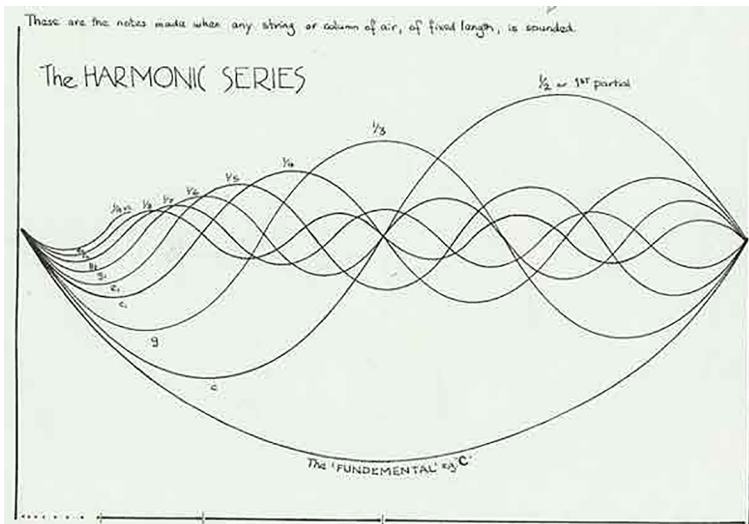 These are the notes made when any string or column of air, of fixed length, is sounded.
The HARMONIC SERIES
1/2 or 1ST partial
1/3
1/4
1/5
1/6
1/7
1/8
g1
e1
c1
g
c
The 'FUNDEMENTAL' eg 'C'